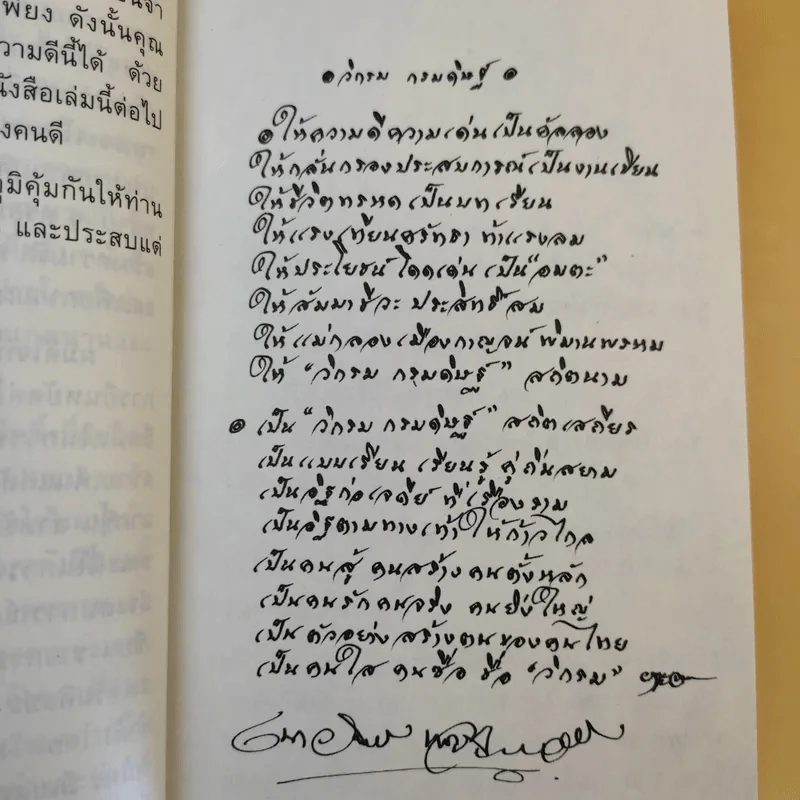 นจา
พียง ดังนั้นคุณ
วามดีนี้ได้ ด้วย
นังสือเล่มนี้ต่อไป
งคนดี
ภูมิคุ้มกันให้ท่าน
และประสบแต่
วิกรม กรมดิษฐ์
ให้ความดีความเด่นเป็นอัลลอง
ให้กลั่นกรองประสบการณ์เป็นงานเขียน
ให้ชีวิตทรหดเป็นบทเรียน
ให้แรงเทียนศรัทธา ท้าแรงลม
ให้ประโยชน์โดดเด่น เป็น"อมตะ"
ให้สัมมาชีวะ ประสิทธิ์สม
ให้แม่กลองเมืองกาญจน์พิมานพรหม
ให้ "วิกรม กรมดิษฐ์" สถิตนาม
เป็น "วิกรม กรมดิษฐ์" สถิตเสถียร
เป็นแบบเรียน เรียนรู้ คู่ถิ่นสยาม
เป็นอิฐก่อเจดีย์ ที่เรืองราม
เป็นอิฐตามทางเท้าให้ก้าวไกล
เป็นคนสู้ คนสร้าง คนตั้งหลัก
เป็นคนรัก คนจริง คนยิ่งใหญ่
เป็นตัวอย่างสร้างตนของคนไทย
เป็นคนใส คนซื่อ ชื่อ "วิกรม"